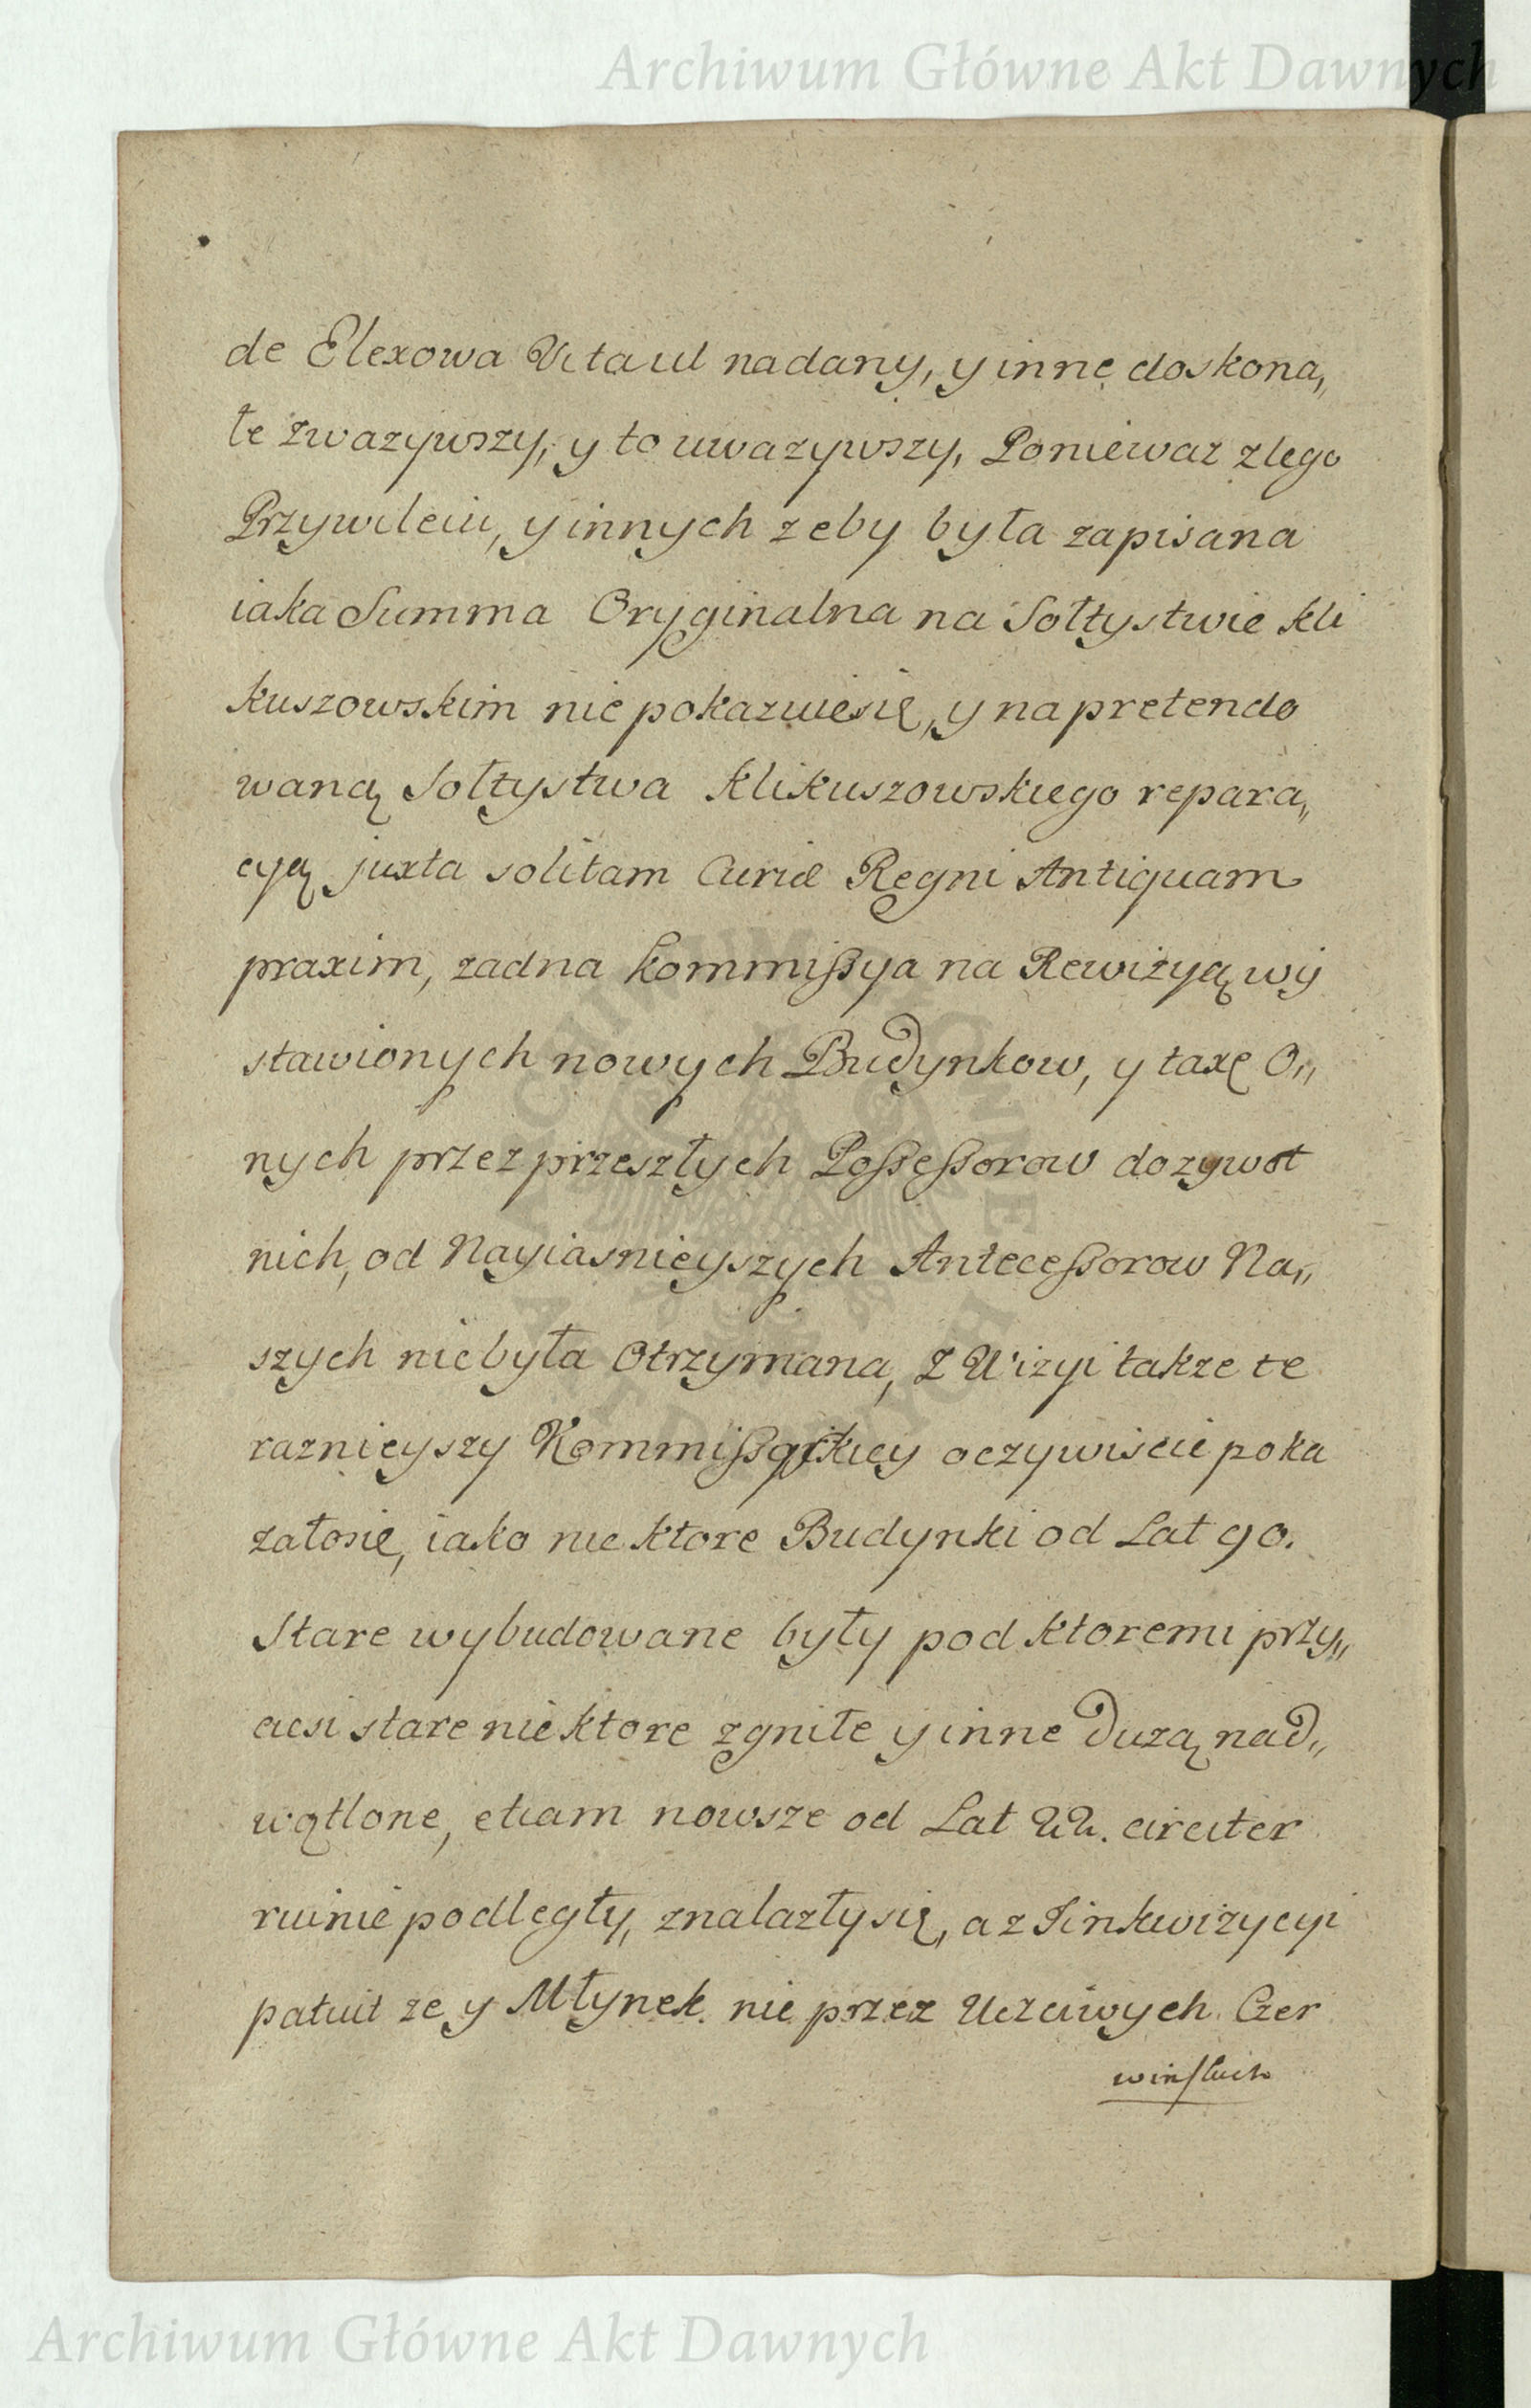 Archiwum Główne Akt Dawnych
de Elexowa Vitaul nadany, y inne doskona„
łe zwazywszy, y to uwazywszy, Poniewaz z tego
Przywileiu, y innych zeby była zapisana
iaka Summa Oryginalna na Sołtystwie Kli
kuszowskim nie pokazuie się, y na pretendo
waną Sołtystwa Klikuszowskiego repara„
cyą juxta solitam Curiæ Regni Antiquam
praxim, zadna Kommißya na Rewizyą wy
stawionych nowych Budynkow, y taxę O„
nych przez przeszłych Poßeßorow dozywot
nich, od Nayiasnieyszych Anteceßorow Na„
szych nie była Otrzymana, Z Wizyi takze te
raznieyszy Kommißarskiey oczywiscie poka
załosię, iako nie ktore Budynki od Lat 90.
Stare wybudowane były pod ktoremi przy„
ciesi stare nie ktore zgniłe y inne Duzą nad„
wątlone, etiam nowsze od Lat 22. circiter
ruinie podległy, znalazły się, a z Jinkwizycyi
patuit ze y Młynek nie przez Uczciwych Czer
winskich
Archiwum Główne Akt Dawnych